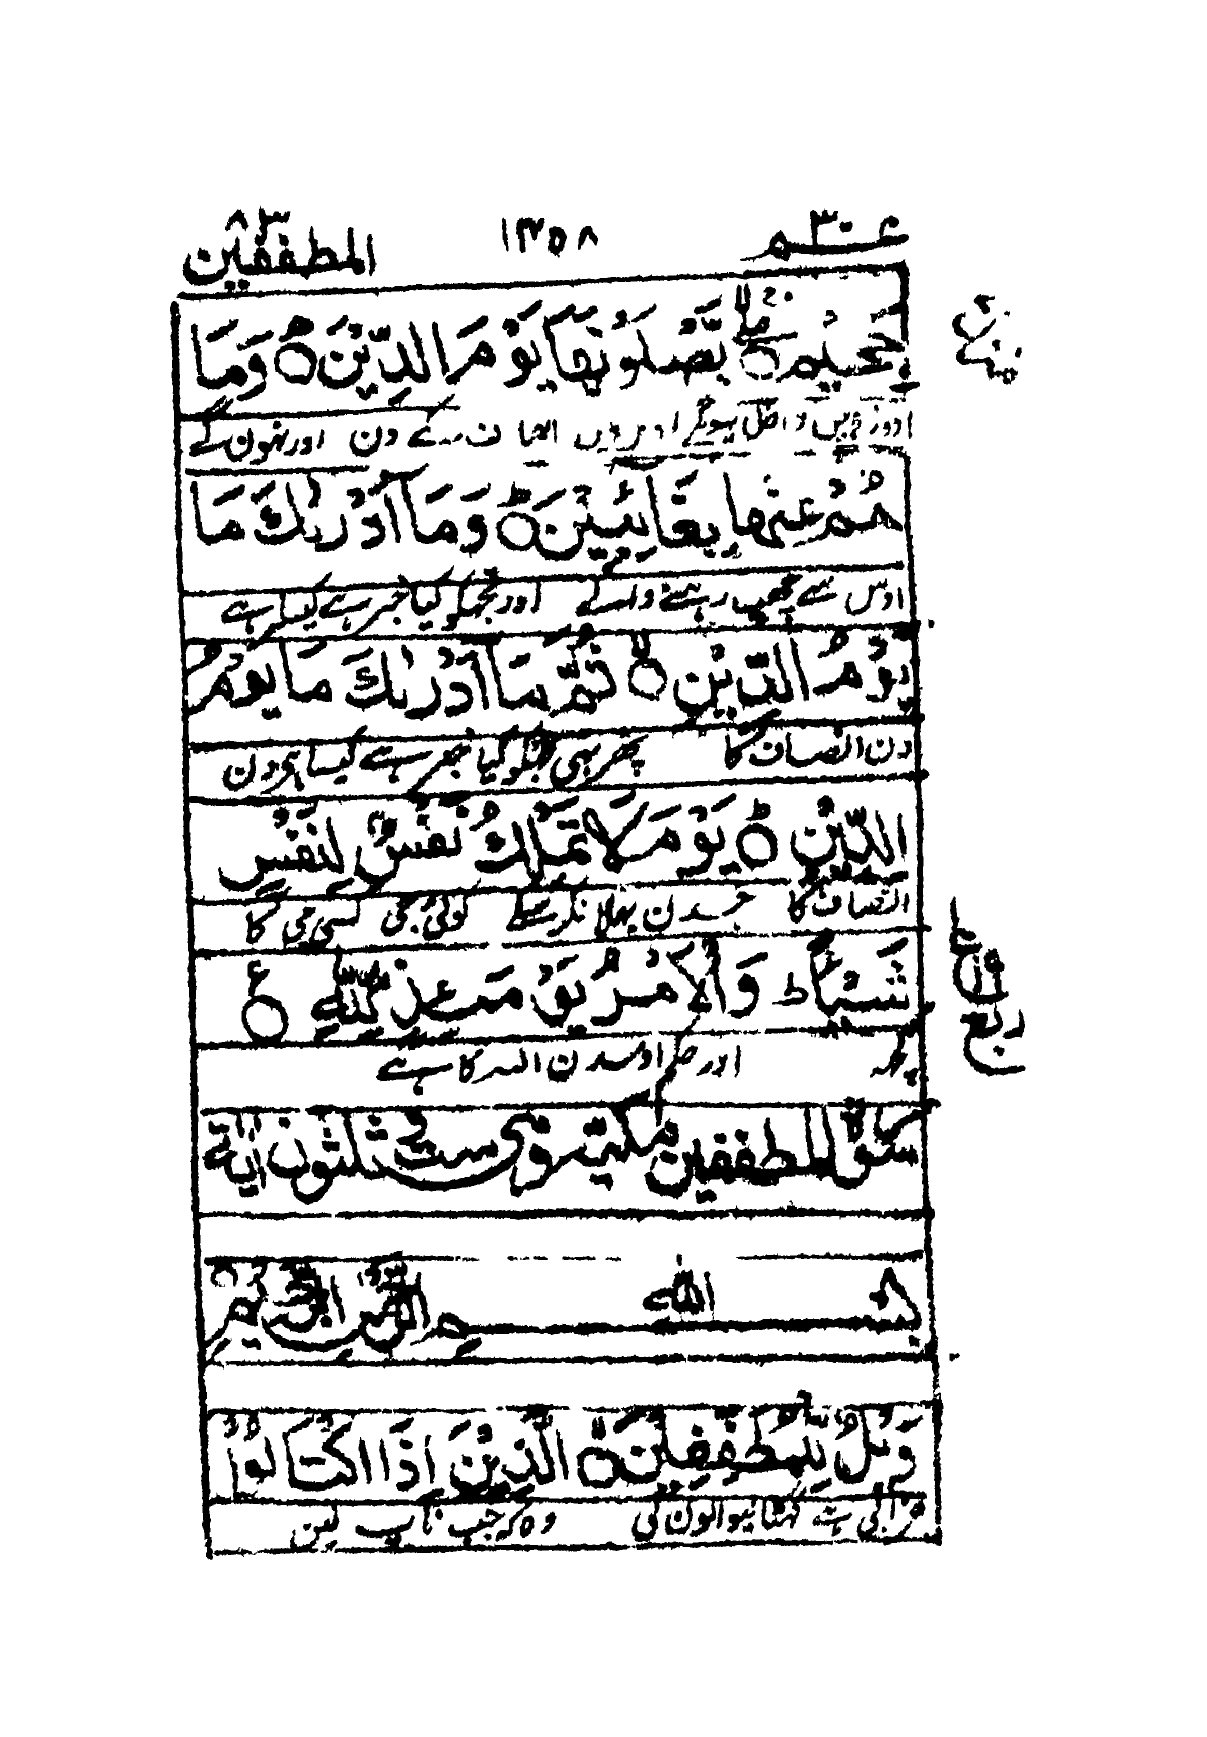 عـــم ٣٠ ١٣٥٨ المطففين ٨٣
جَحِيْمٍ ۝ يَّصْلَوْنَهَا يَوْمَ الدِّيْنِ ۝ وَمَا
دوزخ میں داخل ہونگے اوس میں انصاف کے دن اور نہون گے
هُمْ عَنْهَا بِغَآئِبِيْنَ ۝ وَمَآ اَدْرٰىكَ مَا
اوس سے چھپ رہنے والے اور تجھکو کیا خبر ہے کیسا ہے
يَوْمُ الدِّيْنِ ۝ ثُمَّ مَآ اَدْرٰىكَ مَا يَوْمُ
دن انصاف کا پھر بھی تجکو کیا خبر ہے کیسا ہے دن
الدِّيْنِ ۝ يَوْمَ لَا تَمْلِكُ نَفْسٌ لِّنَفْسٍ
انصاف کا جسدن بھلا نکر سکے کوئی جی کسی جی کا
شَيْئًا ط وَالْاَمْرُ يَوْمَئِذٍ لِّلّٰهِ ۝ ع
کچھ اور اوسدن اللہ کا ہے
ربع
سورة المطففين مكية وهي ست وثلثون اية
بسم الله الرحمن الرحيم
وَيْلٌ لِّلْمُطَفِّفِيْنَ ۝ الَّذِيْنَ اِذَا اكْتَالُوْا
خرابی ہے گھٹانیوالون کی وہ کہ جب ناپ لین